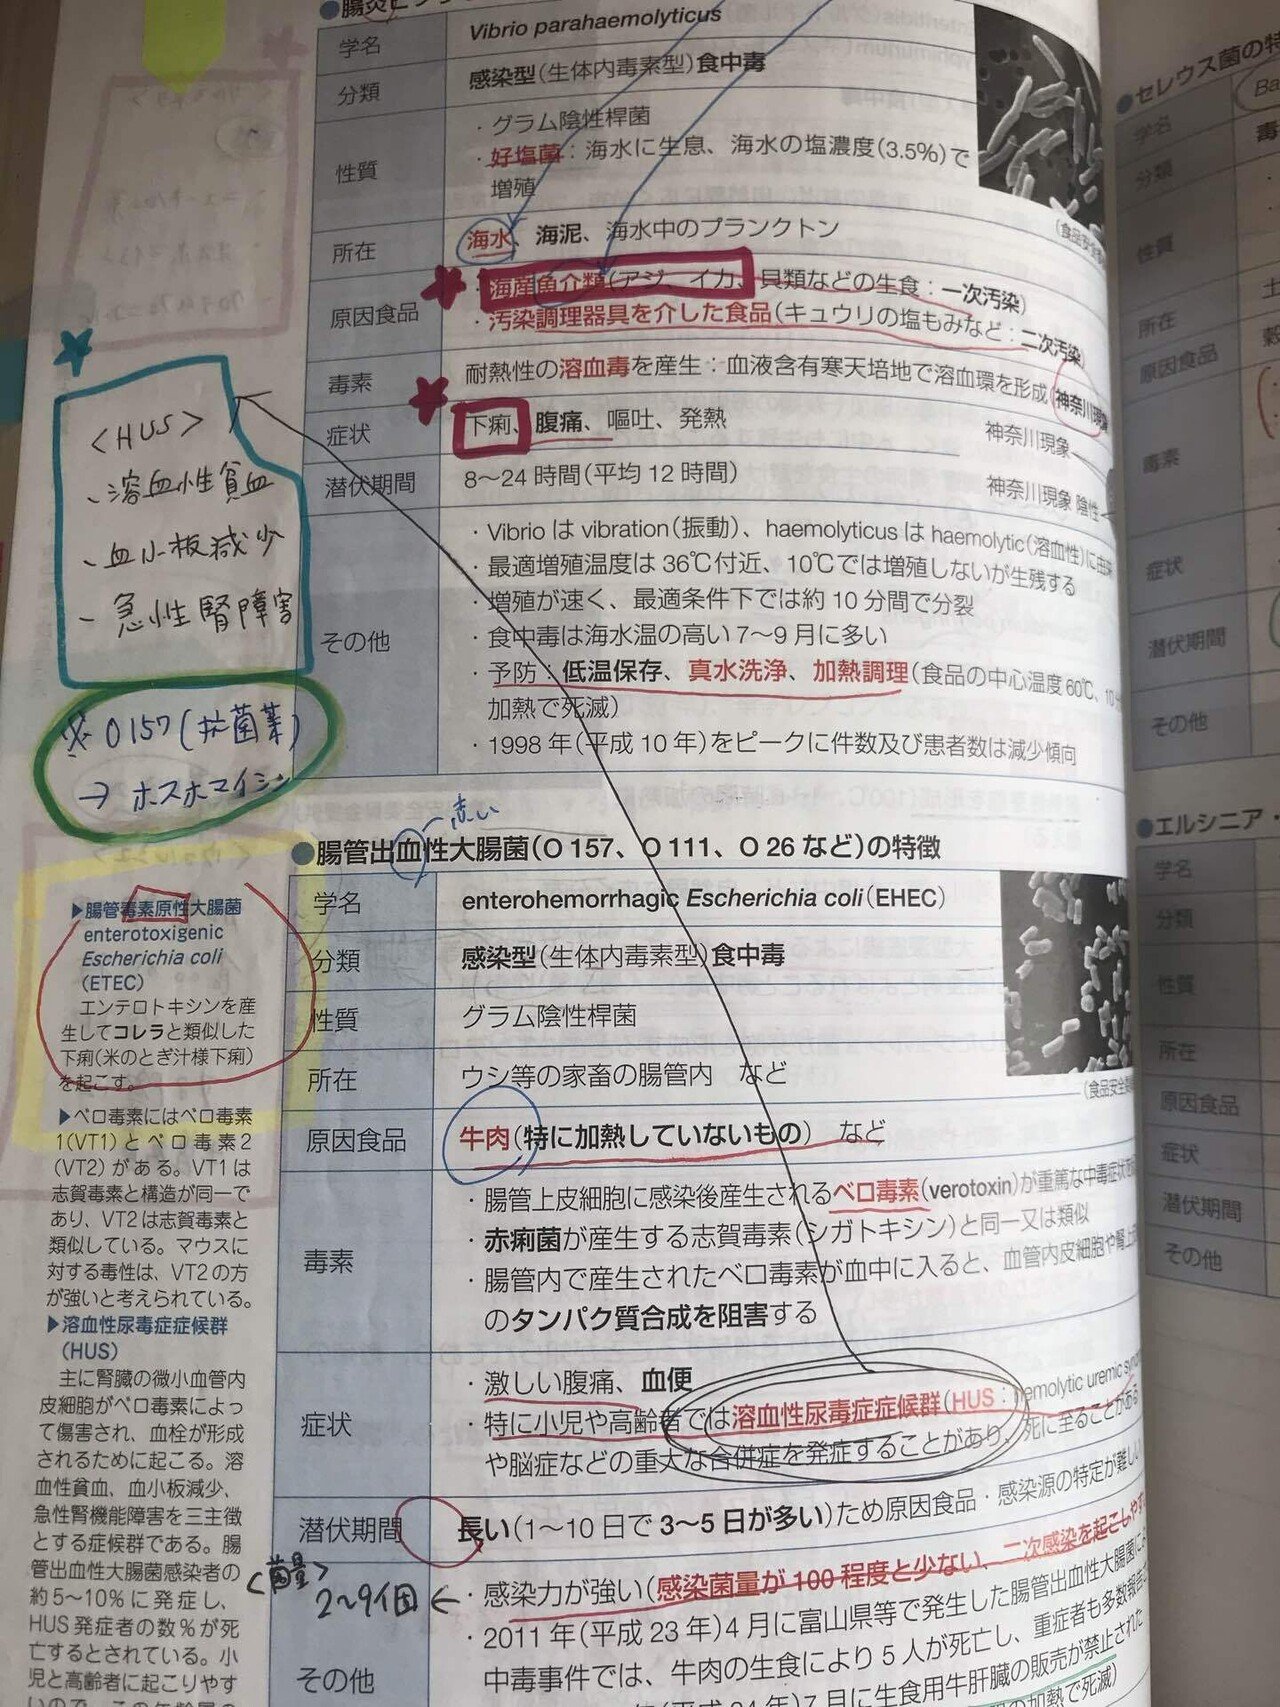 学名
Vibrio parahaemolyticus
分類
感染型(生体内毒素型)食中毒
性質
・グラム陰性桿菌
・好塩菌：海水に生息、海水の塩濃度(3.5%)で
増殖
所在
海水、海泥、海水中のプランクトン
原因食品
・海産魚介類(アジ、イカ、貝類などの生食：一次汚染)
・汚染調理器具を介した食品(キュウリの塩もみなど：二次汚染)
毒素
耐熱性の溶血毒を産生：血液含有寒天培地で溶血環を形成(神奈川現象
症状
下痢、腹痛、嘔吐、発熱
神奈川現象
潜伏期間
8～24時間(平均12時間)
神奈川現象 陰性
その他
・Vibrioはvibration(振動)、haemolyticusはhaemolytic(溶血性)に由来
・最適増殖温度は36℃付近、10℃では増殖しないが生残する
・増殖が速く、最適条件下では約10分間で分裂
・食中毒は海水温の高い7～9月に多い
・予防：低温保存、真水洗浄、加熱調理(食品の中心温度60℃、10
加熱で死滅)
・1998年(平成10年)をピークに件数及び患者数は減少傾向
<HUS>
、溶血性貧血
、血小板減少
- 急性腎障害
※O157(抗菌薬)
→ホスホマイシン
赤い
●腸管出血性大腸菌(O157、O111、O26など)の特徴
学名
enterohemorrhagic Escherichia coli(EHEC)
分類
感染型(生体内毒素型)食中毒
性質
グラム陰性桿菌
所在
ウシ等の家畜の腸管内　など
原因食品
牛肉(特に加熱していないもの)　など
毒素
・腸管上皮細胞に感染後産生されるベロ毒素(verotoxin)が重篤な中毒症状
・赤痢菌が産生する志賀毒素(シガトキシン)と同一又は類似
・腸管内で産生されたベロ毒素が血中に入ると、血管内皮細胞や腎上
のタンパク質合成を阻害する
症状
・激しい腹痛、血便
・特に小児や高齢者では溶血性尿毒症症候群(HUS：hemolytic uremic
や脳症などの重大な合併症を発症することがあり、死に至ることがある
潜伏期間
長い(1～10日で3～5日が多い)ため原因食品・感染源の特定が難し
その他
・感染力が強い(感染菌量が100程度と少ない、二次感染を起こしやす
<菌量>
2～9個←
・2011年(平成23年)4月に富山県等で発生した腸管出血性大腸菌
中毒事件では、牛肉の生食により5人が死亡し、重症者も多数報告
7月に生食用牛肝臓の販売が禁止された
の加熱で死滅)
▶腸管毒素原性大腸菌
enterotoxigenic
Escherichia coli
(ETEC)
エンテロトキシンを産
生してコレラと類似した
下痢(米のとぎ汁様下痢)
を起こす。
▶ベロ毒素にはベロ毒素
1(VT1)とベロ毒素2
(VT2)がある。VT1は
志賀毒素と構造が同一で
あり、VT2は志賀毒素と
類似している。マウスに
対する毒性は、VT2の方
が強いと考えられている。
▶溶血性尿毒症症候群
(HUS)
主に腎臓の微小血管内
皮細胞がベロ毒素によっ
て傷害され、血栓が形成
されるために起こる。溶
血性貧血、血小板減少、
急性腎機能障害を三主徴
とする症候群である。腸
管出血性大腸菌感染者の
約5～10%に発症し、
HUS発症者の数%が死
亡するとされている。小
児と高齢者に起こりやす
●セレウス菌の特
学名
Ba
分類
毒
性質
所在
土
原因食品
穀
毒素
症状
潜伏期間
その他
●エルシニア・
学名
分類
性質
所在
原因食品
症状
潜伏期間
その他